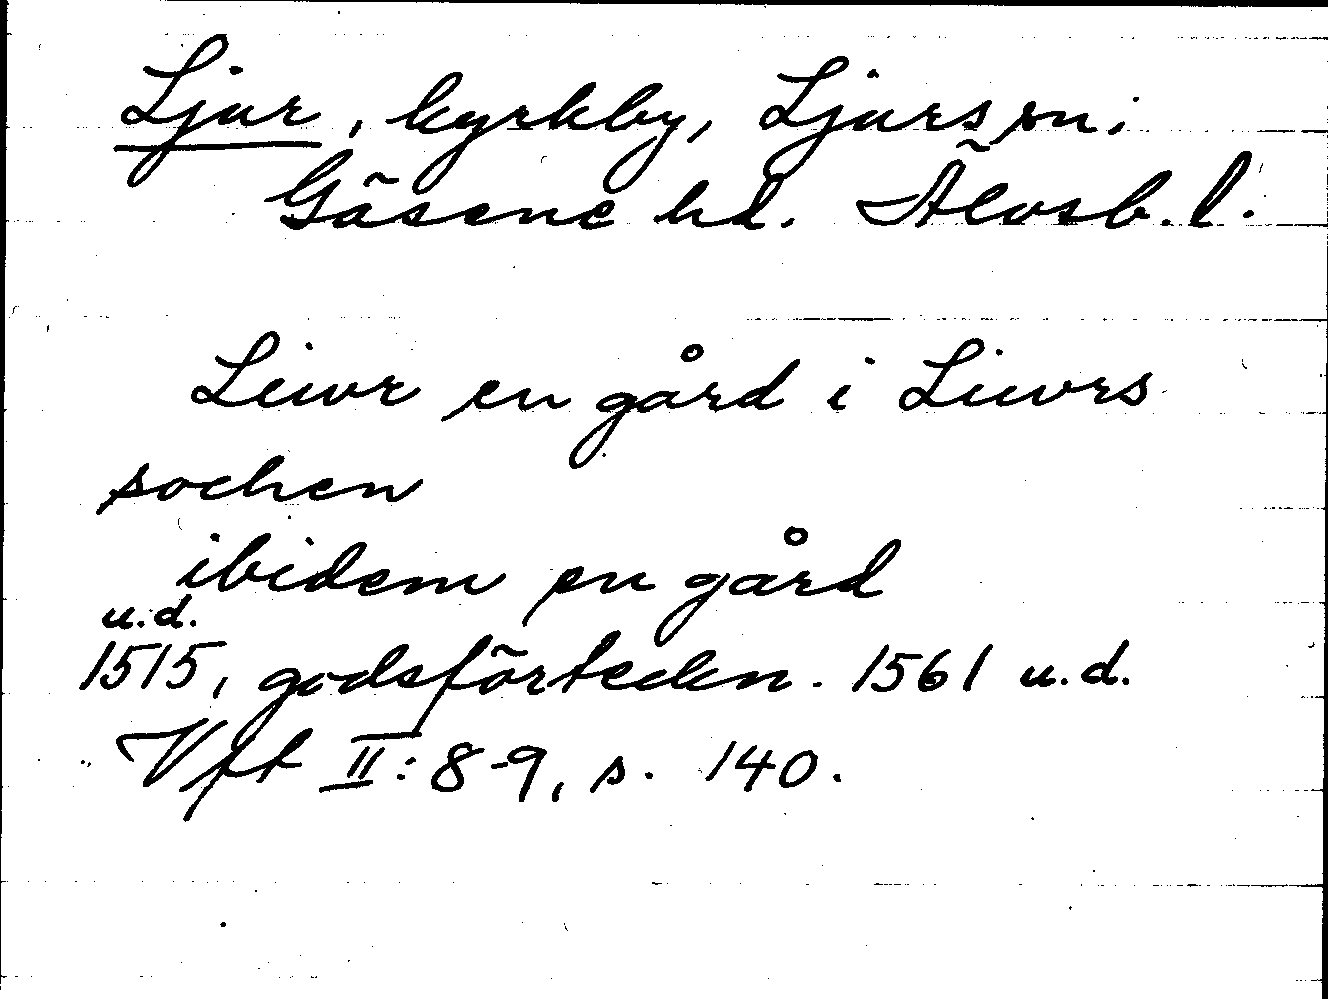 Ljur, kyrkby, Ljurs sn;
Gäsene hd. Älvsb. l.
Liwr en gård i Liwrs
sochen
ibidem en gård
u.d.
1515, godsförteckn. 1561 u.d.
Vft II: 8-9, s. 140.